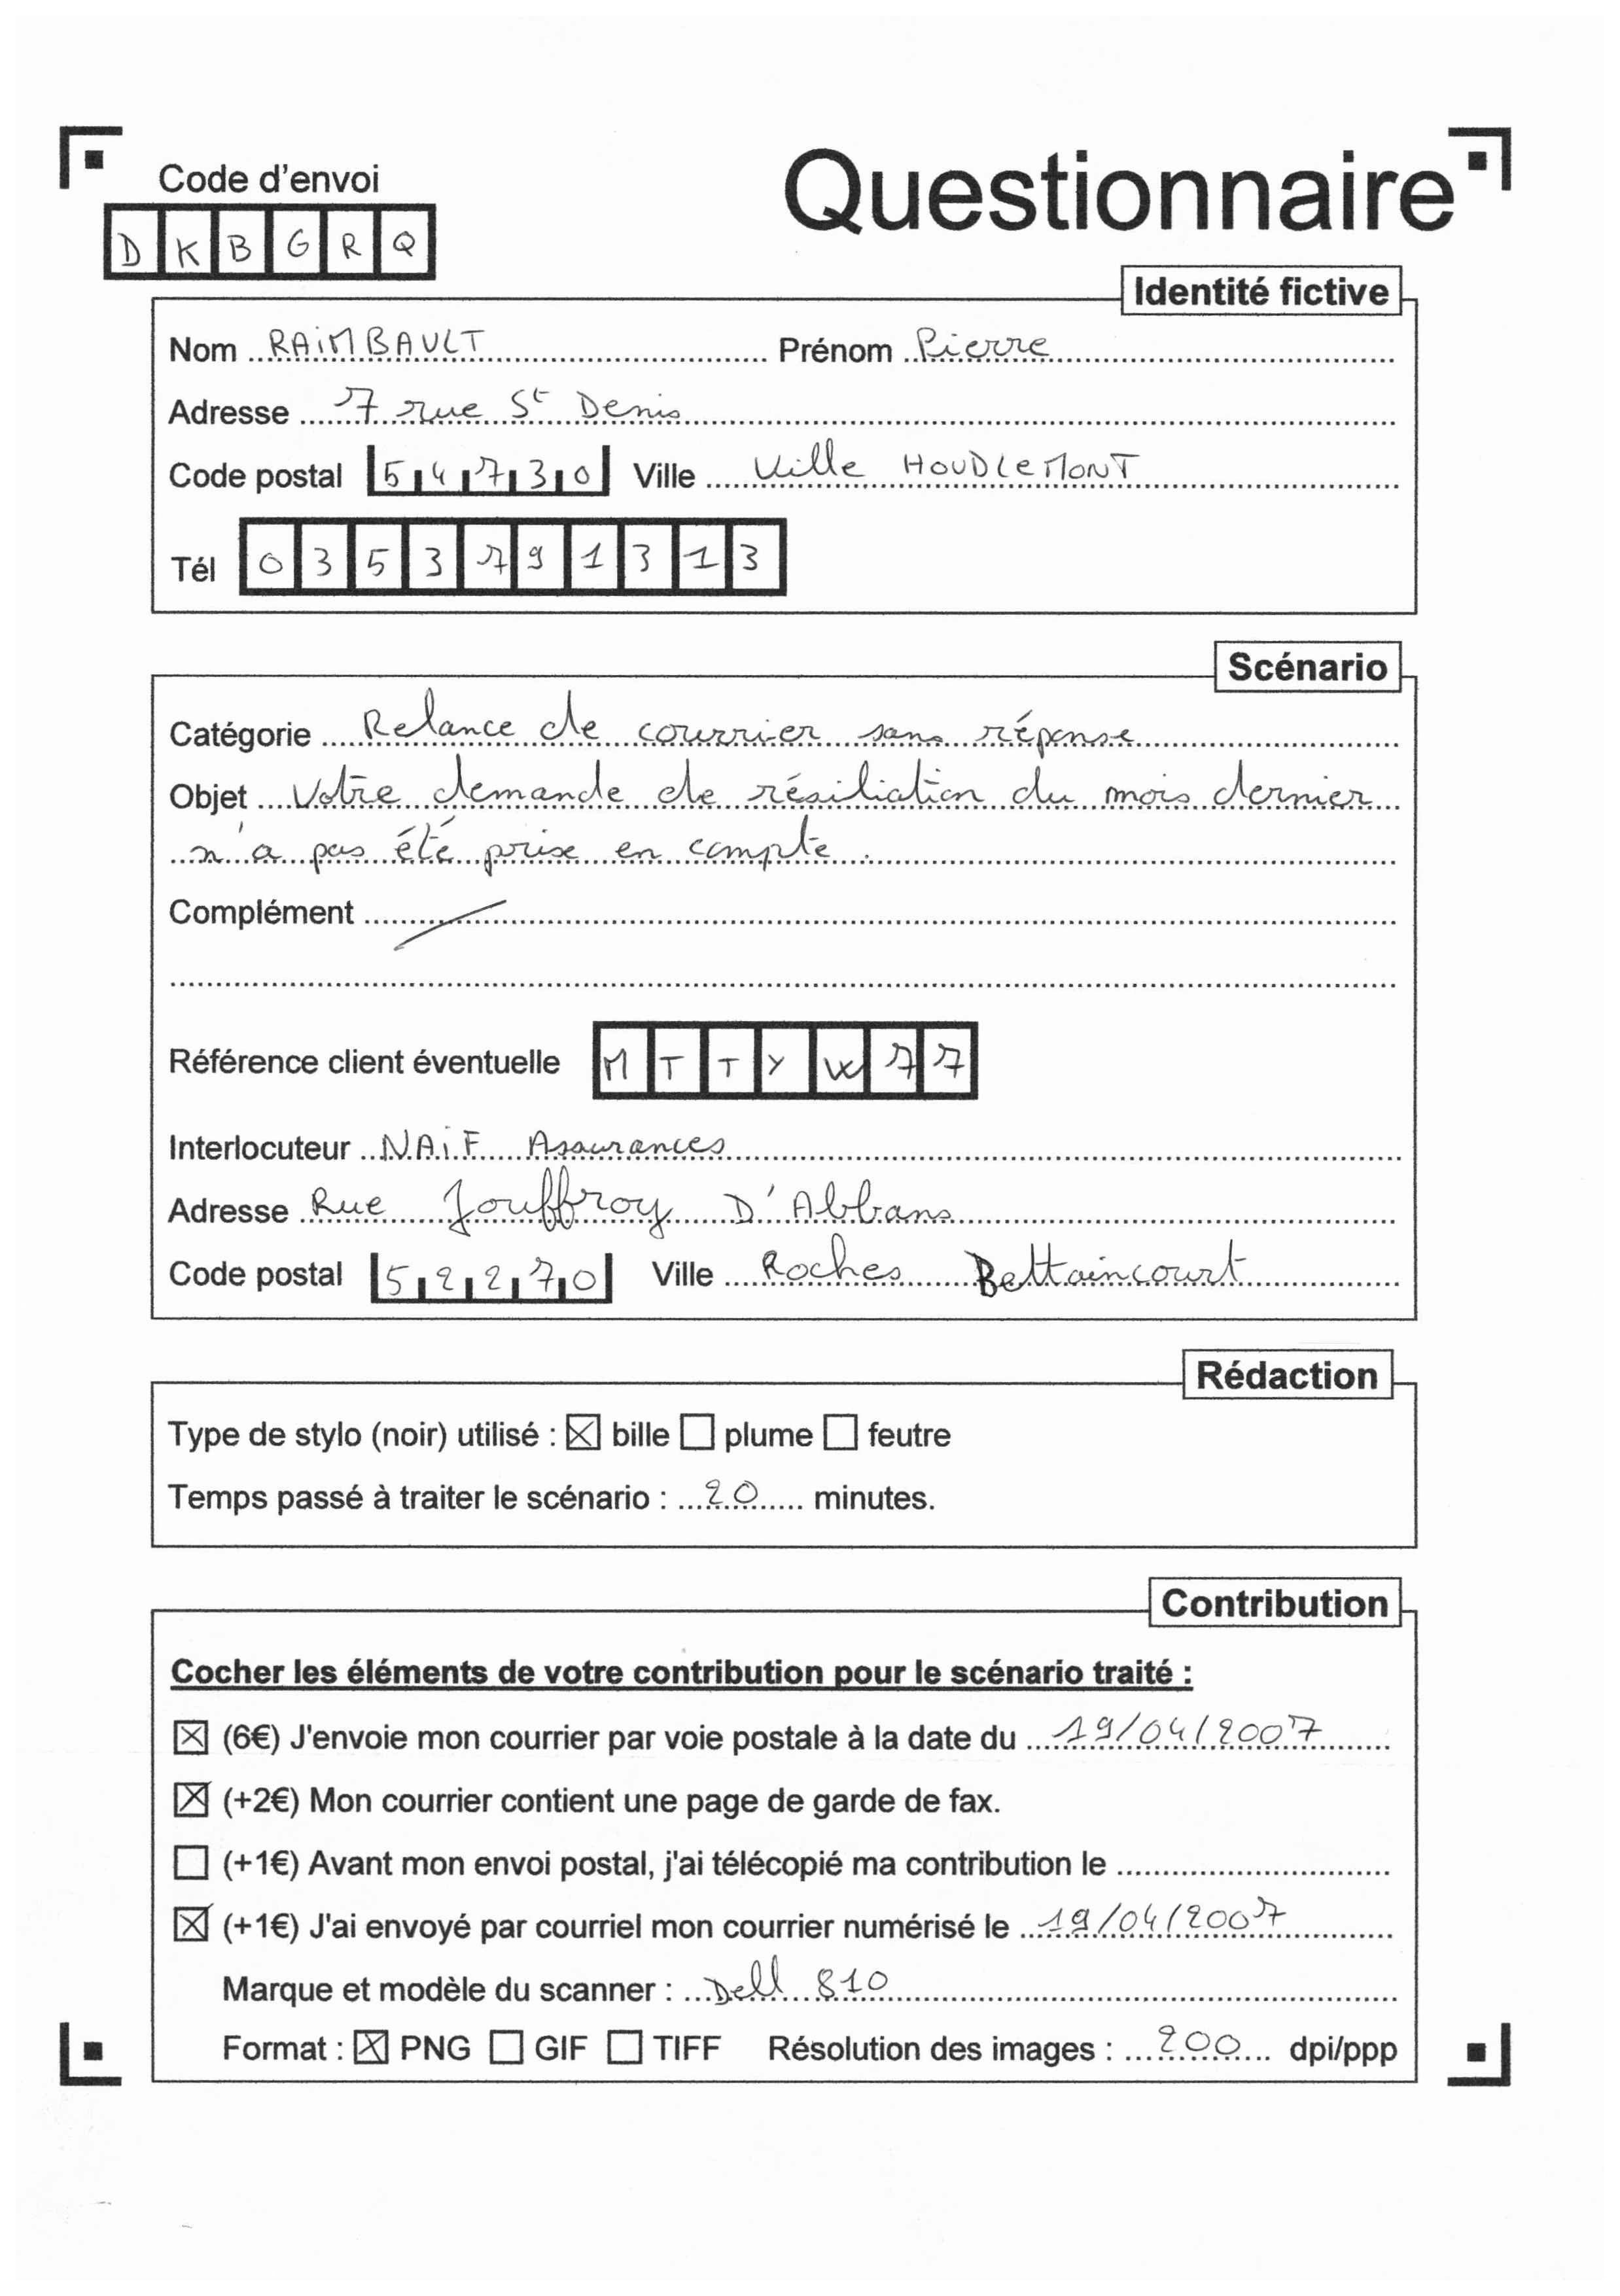 Code d'envoi
Questionnaire
D K B G R Q
Identité fictive
Nom RAiMBAULT Prénom Pierre
Adresse 7 rue St Denis
Code postal 54730 Ville Ville HOUDLeMONT
Tél 0353791313
Scénario
Catégorie Relance de courrier sans réponse
Objet Votre demande de résiliation du mois dernier
n'a pas été prise en compte.
Complément
Référence client éventuelle MTTYW77
Interlocuteur NAiF Assurances
Adresse Rue Jouffroy D'Abbans
Code postal 52270 Ville Roches Bettaincourt
Rédaction
Type de stylo (noir) utilisé : ☒ bille ☐ plume ☐ feutre
Temps passé à traiter le scénario : 20 minutes.
Contribution
Cocher les éléments de votre contribution pour le scénario traité :
☒ (6€) J'envoie mon courrier par voie postale à la date du 19/04/2007
☒ (+2€) Mon courrier contient une page de garde de fax.
☐ (+1€) Avant mon envoi postal, j'ai télécopié ma contribution le
☒ (+1€) J'ai envoyé par courriel mon courrier numérisé le 19/04/2007
Marque et modèle du scanner : Dell 810
Format : ☒ PNG ☐ GIF ☐ TIFF Résolution des images : 200 dpi/ppp